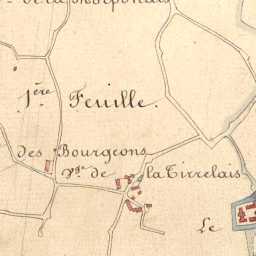 1ère Feuille.
des Bourgeons
Vge de la Tirrelais
Le